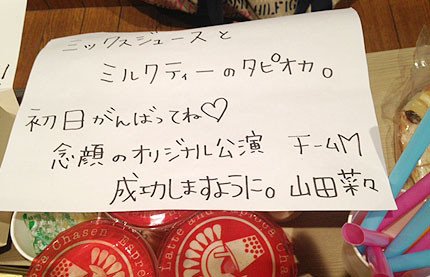 ミックスジュースと
ミルクティーのタピオカ。
初日がんばってね♡
念願のオリジナル公演 チームM
成功しますように。山田菜々
Latte and Tapioca
Chasen